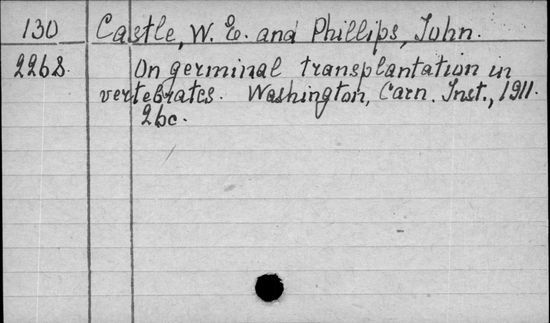 130 Castle, W. E. and Phillips, John.
2268. On germinal transplantation in
vertebrates. Washington, Carn. Inst., 1911.
26c.